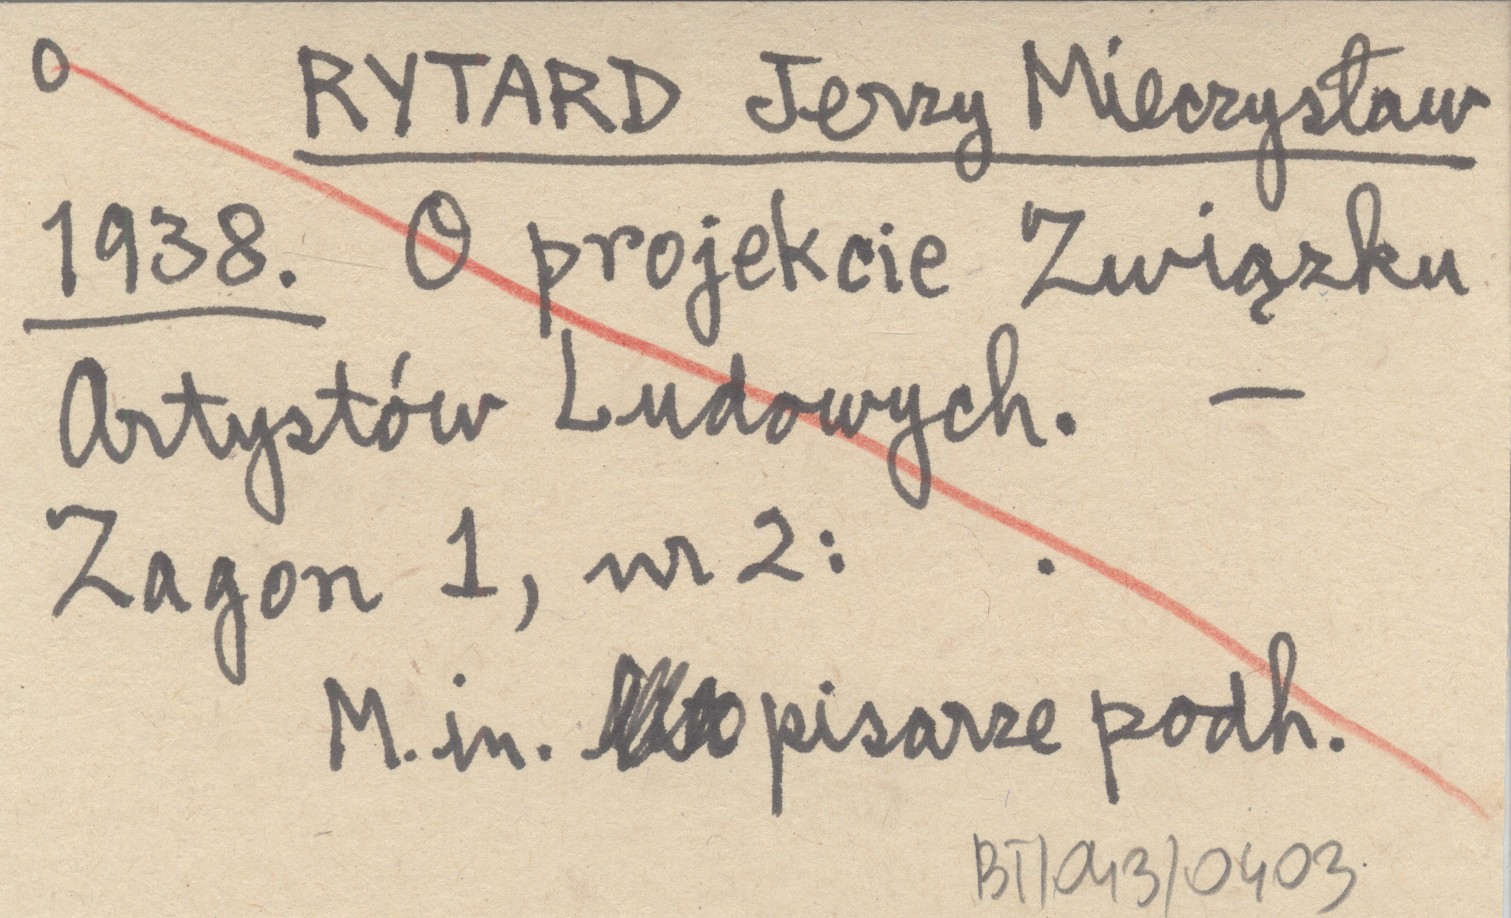 O RYTARD Jerzy Mieczysław
1938. O projekcie Związku
Artystów Ludowych. —
Zagon 1, nr 2: .
M. in. pisarze podh.
BT/043/0403